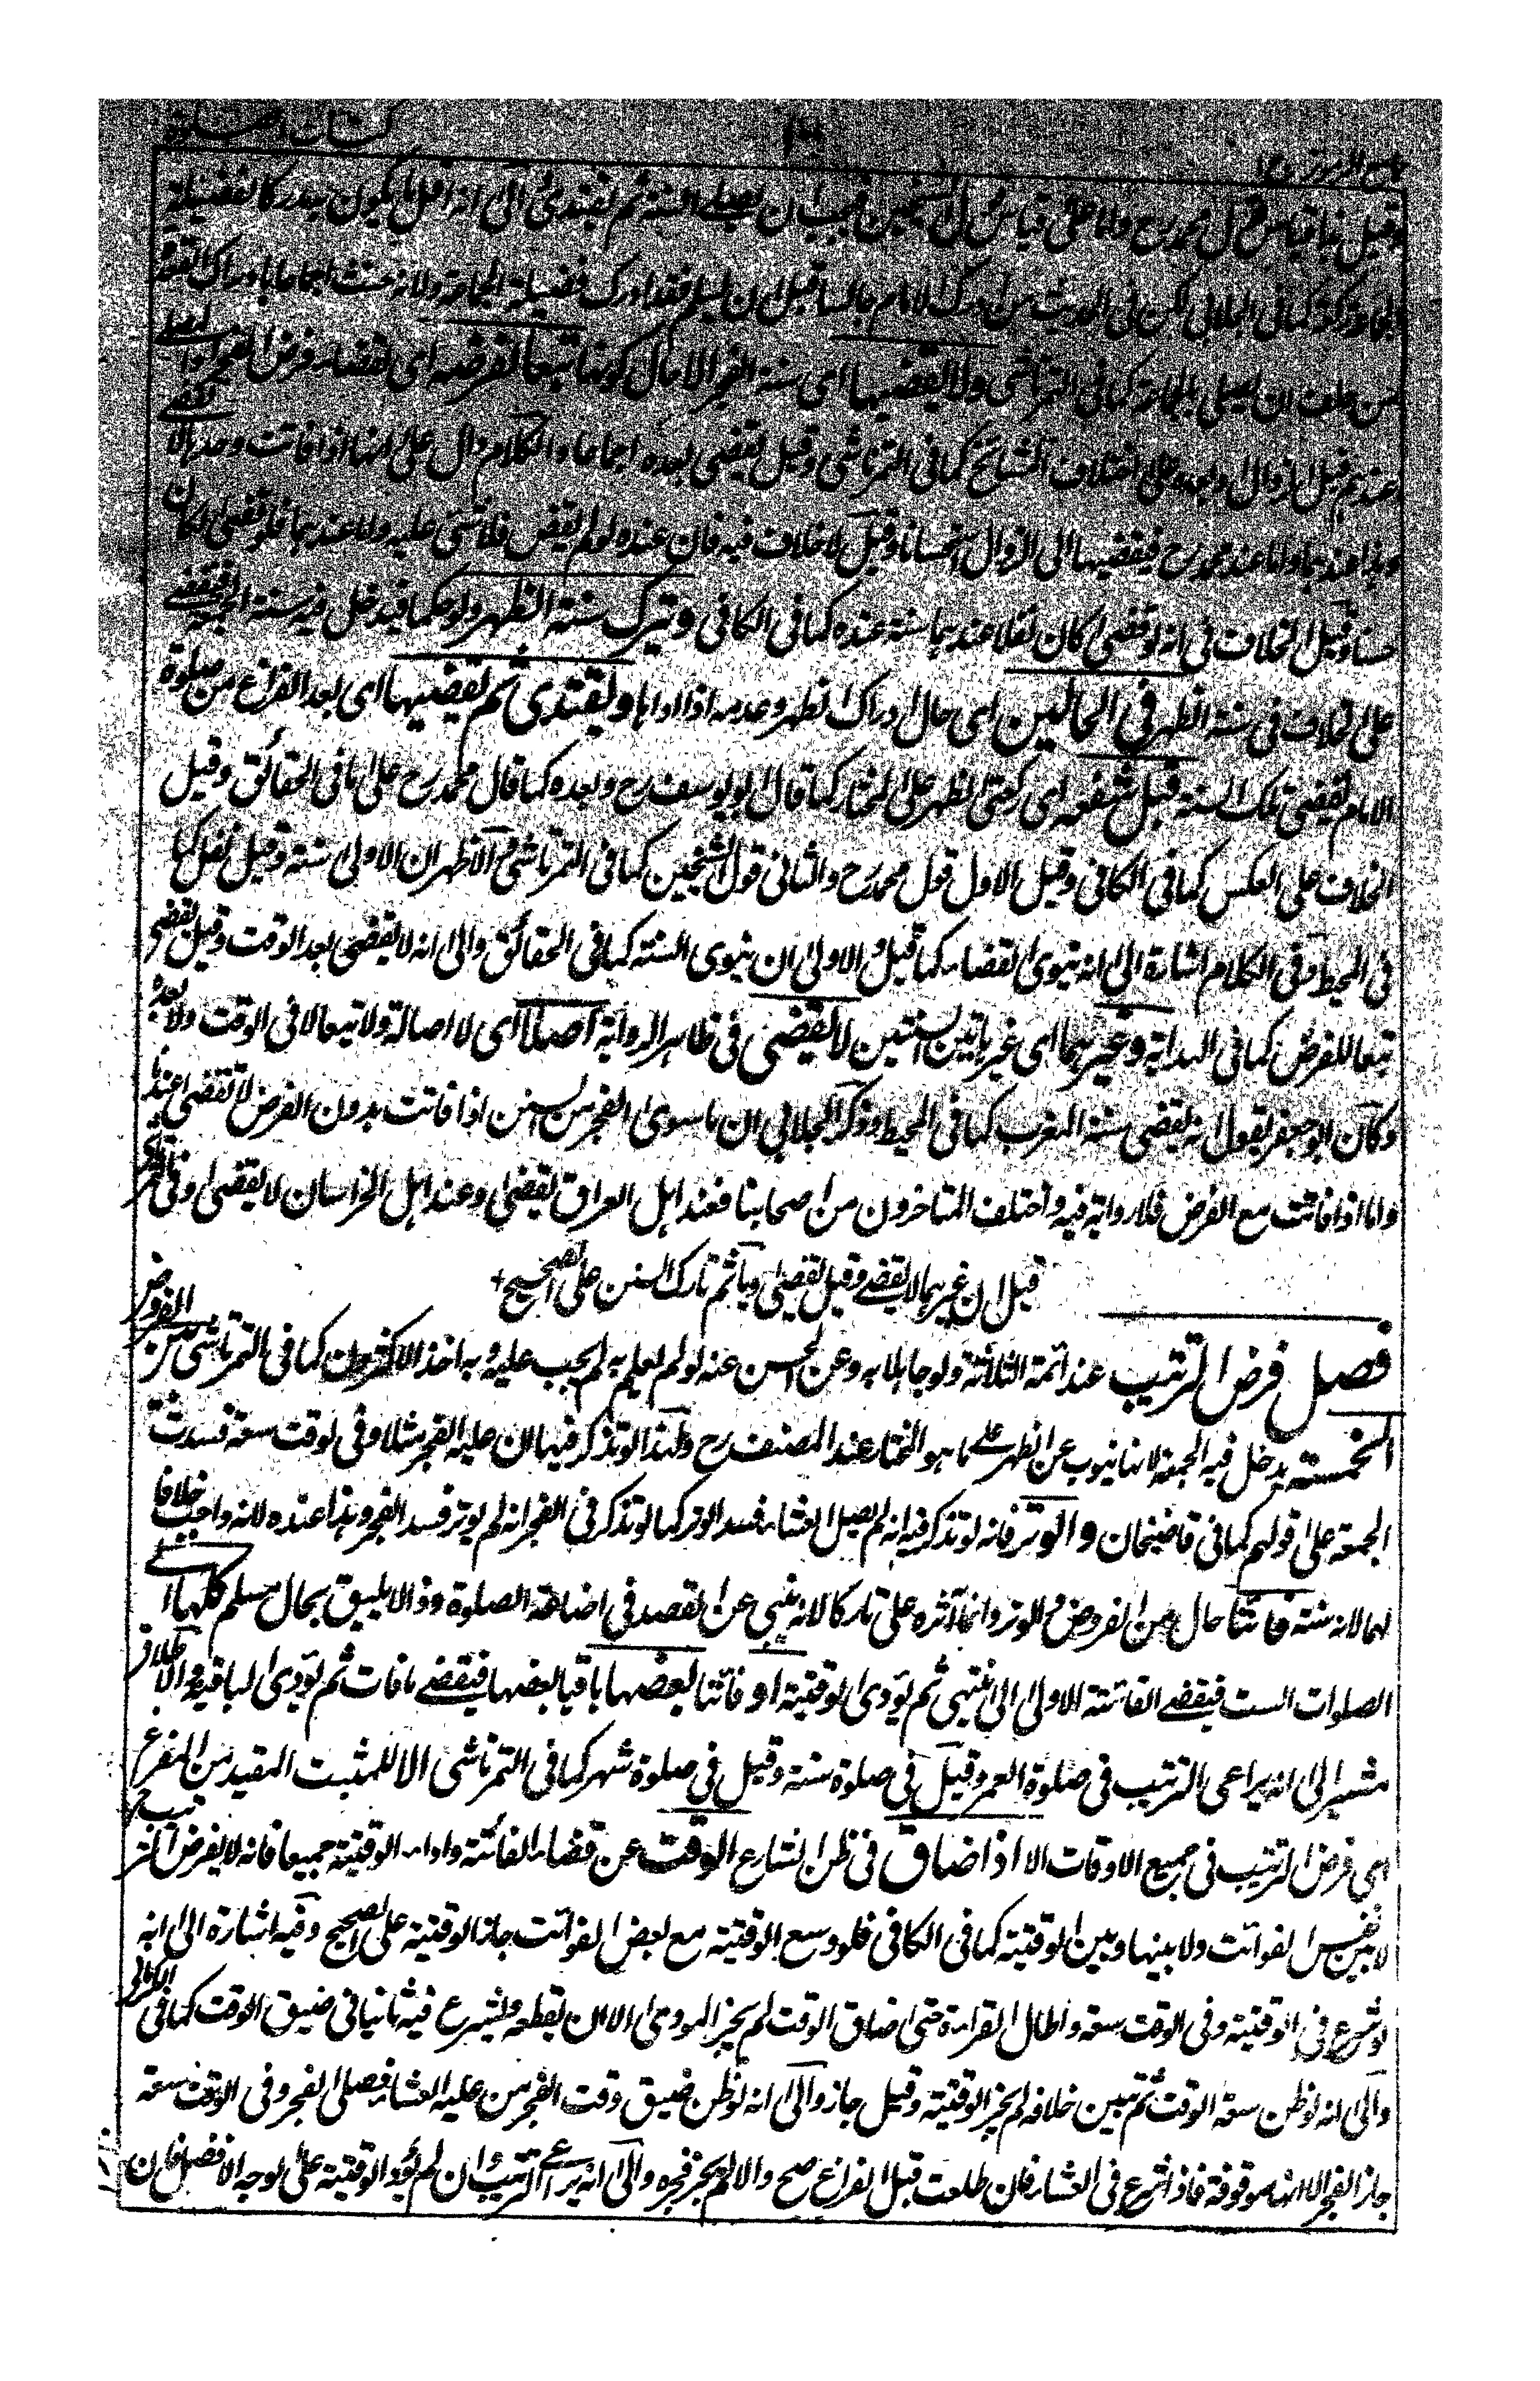 كتاب الصلوة
جامع الرموز ج ١
وقيل هذا قياس قول محمد رح واما على قياس قول الشيخين فيجب ان يصلي السنة ثم يقتدى والى انه اقل ما يكون مدركا لفضيلة
الجماعة ركعة كما فى الجلابي لكن فى الحديث من ادرك الامام جالسا قبل ان يسلم فقد ادرك فضيلة الجماعة ولانه حنث اجماعا بادراك القعدة
من حلف ان ليصلى بالجماعة كما فى التمرتاشى ولا يقضيها اى سنة الفجر الا حال كونها تبعا لفرضه اى لقضاء فرض الفجر اذا
عندهم قبل الزوال او بعده على اختلاف المشائخ كما فى التمرتاشى وقيل يقضى بعده اجماعا والكلام دال على انها اذا فاتت وحدها لا
وهذا عندهما واما عند محمد رح فيقضيها الى الزوال استحسانا وقيل لا خلاف فيه فان عنده لو لم يقض فلا شىء عليه ولا عندهما فلو قضى لكان
حسنا وقيل الخلاف فى انه لو قضى كان نفلا عندهما سنة عنده كما فى الكافى ويترك سنة الظهر ولو حكما فيدخل فيه سنة الجمعة
على الخلاف فى سنة الظهر فى الحالين اى حال ادراك الظهر وعدمه اذا اداها ويقتدى ثم يقضيها اى بعد الفراغ من صلوة
الامام يقضى تلك السنة قبل شفعه اى ركعتى الظهر على المختار كما قال ابو يوسف رح وبعده كما قال محمد رح على ما فى الحقائق وقيل
الخلاف على العكس كما فى الكافى وقيل الاول قول محمد رح والثانى قول الشيخين كما فى التمرتاشى والاظهر ان الاولى سنة وقيل نفل كما
فى المحيط وفى الكلام اشارة الى انه ينوى القضاء كما قيل والاولى ان ينوى السنة كما فى الحقائق والى انه لا يقضى بعد الوقت وقيل يقضى
تبعا للفرض كما فى الهداية وغيرهما اى غير هاتين السنتين لا يقضى فى ظاهر الرواية اصلا اى لا اصالة ولا تبعا لا فى الوقت ولا بعده
وكان ابو جعفر يقول انه يقضى سنة المغرب كما فى المحيط وذكر الجلابي ان ما سوى الفجر من السنن اذا فاتت بدون الفرض لا تقضى عندنا
واما اذا فاتت مع الفرض فلا رواية فيه واختلف المتاخرون من اصحابنا فعند اهل العراق يقضى وعند اهل الخراسان لا يقضى وفى
قيل ان غيرهما لا يقضى وقيل يقضى وياثم تارك السنن على الصحيح
فصل فرض الترتيب عند ائمة الثلاثة ولو جاهلا به وعن الحسن عنه لو لم يعلم به لم يجب عليه وبه اخذ الاكثرون كما فى التمرتاشى بين الفروض
الخمسة يدخل فيه الجمعة لانها ينوب عن الظهر على ما هو المختار عند المصنف رح ولهذا لو تذكر فيها ان عليه الفجر مثلا وفى الوقت سعة فسدت
الجمعة على قولهم كما فى قاضيخان والوتر فانه لو تذكر فيه انه لم يصل العشاء فسد الوتر كما لو تذكر فى الفجر انه لم يوتر فسد الفجر وهذا عنده لانه واجب خلافا
لهما لانه سنة فائتا حال من الفروض والوتر وانما آثره على تاركا لانه ينبى عن القصد فى اضاعة الصلوة وذا لا يليق بحال مسلم كلها اى
الصلوات الست فيقضى الفائتة الاولى الى ان ينتهى ثم يؤدى الوقتية او فائتا بعضها باقيا بعضها فيقضى ما فات ثم يؤدى الباقية والاطلاق
مشير الى انه يراعى الترتيب فى صلوة العمر وقيل فى صلوة سنة وقيل فى صلوة شهر كما فى التمرتاشى الا للمثبت المقيد من المفرع
اى فرض الترتيب فى جميع الاوقات الا اذا ضاق فى ظن الشارع الوقت عن قضاء الفائتة واداء الوقتية جميعا فانه لا يفرض الترتيب
لا بين نفس الفوائت ولا بينها وبين الوقتية كما فى الكافى فلو وسع الوقتية مع بعض الفوائت جاز الوقتية على الصحيح وفيه اشارة الى انه
لو شرع فى الوقتية وفى الوقت سعة واطال القراءة حتى ضاق الوقت لم يجز المودى الا ان يقطعه ويشرع فيه ثانيا فى ضيق الوقت كما فى الكافى
والى انه لو ظن سعة الوقت ثم تبين خلافه لم يجز الوقتية وقيل جاز والى انه لو ظن ضيق وقت الفجر من عليه العشاء فصلى الفجر وفى الوقت سعة
جاز الفجر الا انها موقوفة فاذا شرع فى العشاء فان طلعت قبل الفراغ صح والا لم يجز فجره والى انه يراعى الترتيب وان لم يؤد الوقتية على الوجه الافضل فان